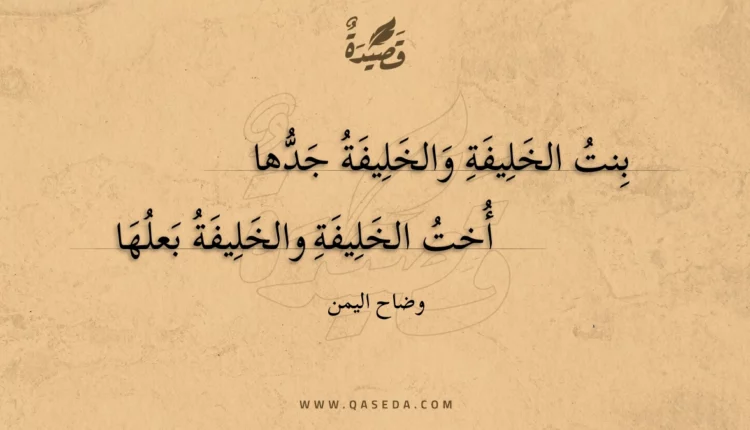 قَصِيدَةٌ
بِنتُ الخَلِيفَةِ وَالخَلِيفَةُ جَدُّها
أُختُ الخَلِيفَةِ والخَلِيفَةُ بَعلُهَا
وضاح اليمن
WWW.QASEDA.COM